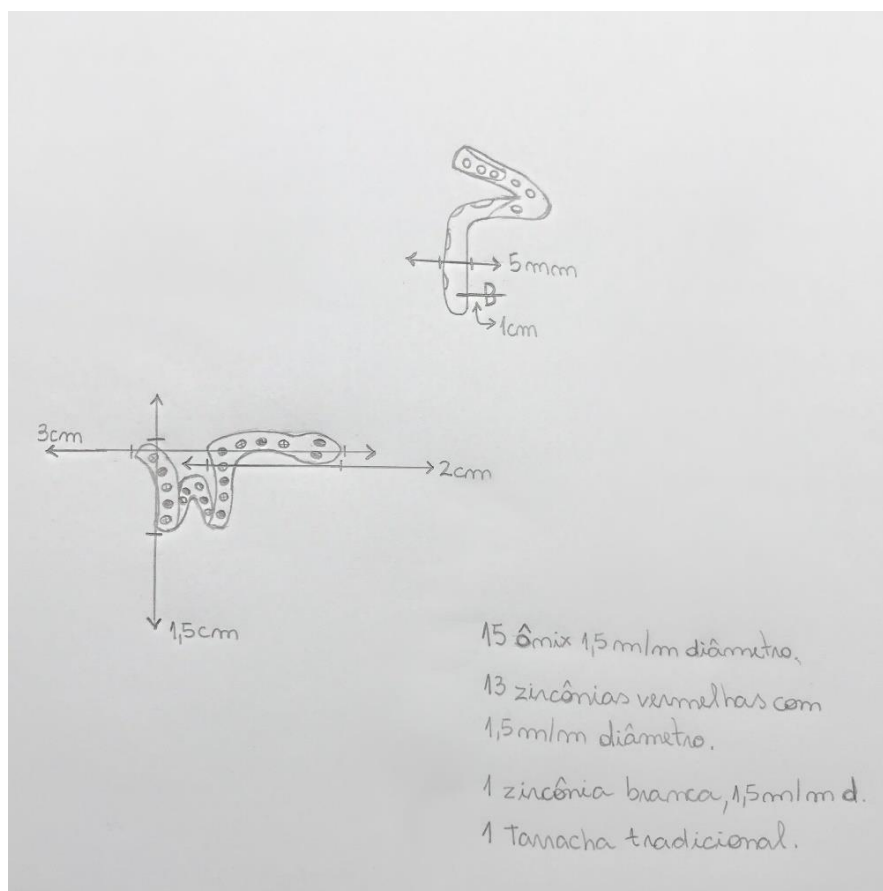 5mm
1cm
3cm
2cm
1,5cm
15 ônix 1,5 m/m diâmetro.
13 zircônias vermelhas com
1,5 m/m diâmetro.
1 zircônia branca, 1,5 m/m d.
1 Tarracha tradicional.